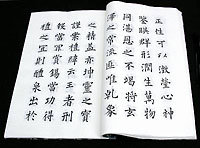 正性可以澂瑩心神
鑒暎群形潤生萬物
同湛恩之不竭將玄
澤之常流匪唯乾象
之精蓋亦坤靈之寶
謹案禮緯云王者刑
殺當罪賞錫當功得
禮之宜則醴泉出於